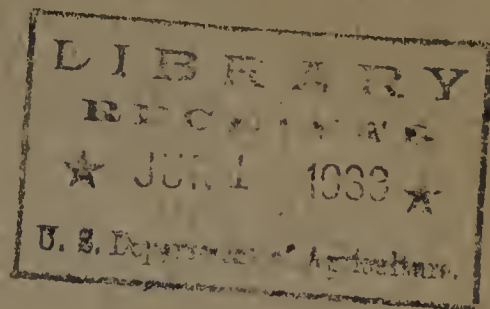 LIBRARY
RECEIVED
★ JUN 1 1933 ★
U. S. Department of Agriculture.